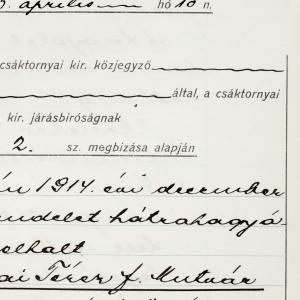 április hó 10 n.
csáktornyai kir. közjegyző
által, a csáktornyai
kir. járásbiróságnak
2. sz. megbizása alapján
1914. évi december
rendelet hátrahagyá
olhalt
Teréz f. Mutvár